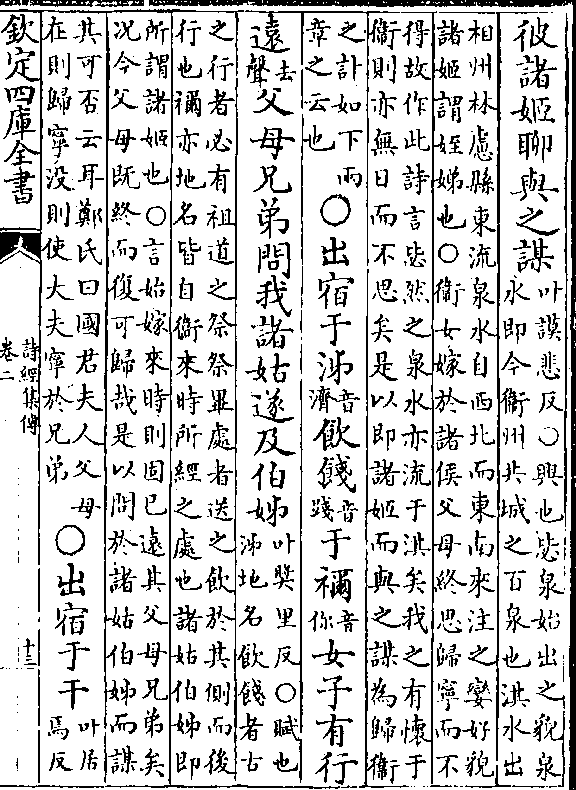 彼諸姬聊與之謀叶謨悲反○興也毖泉始出之貌泉水即今衛州共城之百泉也淇水出
相州林慮縣東流泉水自西北而東南來注之孌好貌諸姬謂姪娣也○衛女嫁於諸侯父母終思歸寧而不
得故作此詩言毖然之泉水亦流于淇矣我之有懷于衛則亦無日而不思矣是以即諸姬而與之謀為歸衛
之計如下兩章之云也○出宿于泲音濟飲餞音踐于禰音你女子有行
遠去聲父母兄弟問我諸姑遂及伯姊叶奬里反○賦也泲地名飲餞者古
之行者必有祖道之祭祭畢處者送之飲於其側而後行也禰亦地名皆自衛來時所經之處也諸姑伯姊即
所謂諸姬也○言始嫁來時則固已遠其父母兄弟矣况今父母既終而復可歸哉是以問於諸姑伯姊而謀
其可否云耳鄭氏曰國君夫人父母在則歸寧没則使大夫寧於兄弟○出宿于干叶居焉反
欽定四庫全書
詩經集傳
卷二
十三